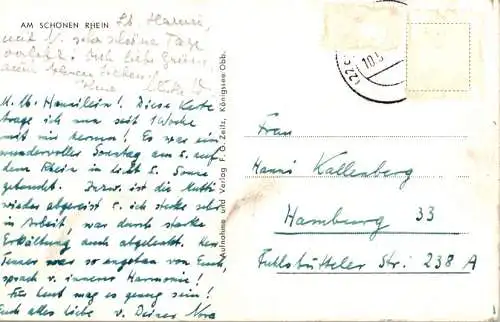 AM SCHÖNEN RHEIN
Lb. Hanni,
schöne Tage
verlebt. liebe Grüße
M. lb. Hannilein! Diese Karte
trage ich nun seit 1 Woche
mit mir herum! Es war ein
wundervoller Sonntag auf
dem Rhein in Sonne
Inzw. ist die Mutti
wieder abgereist u. ich stecke sehr
in Arbeit, war durch starke
Erkältung auch abgelenkt. Mein
war so angetan von Euch,
sprach v. innerer Harmonie!
Für heut mag es genug sein!
Euch alles Liebe v. Deiner Nora
Aufnahme und Verlag F. G. Zeitz, Königssee/Obb.
(22c
10.5
Frau
Hanni Kallenberg
Hamburg 33
Fuhlsbütteler Str. 238 A